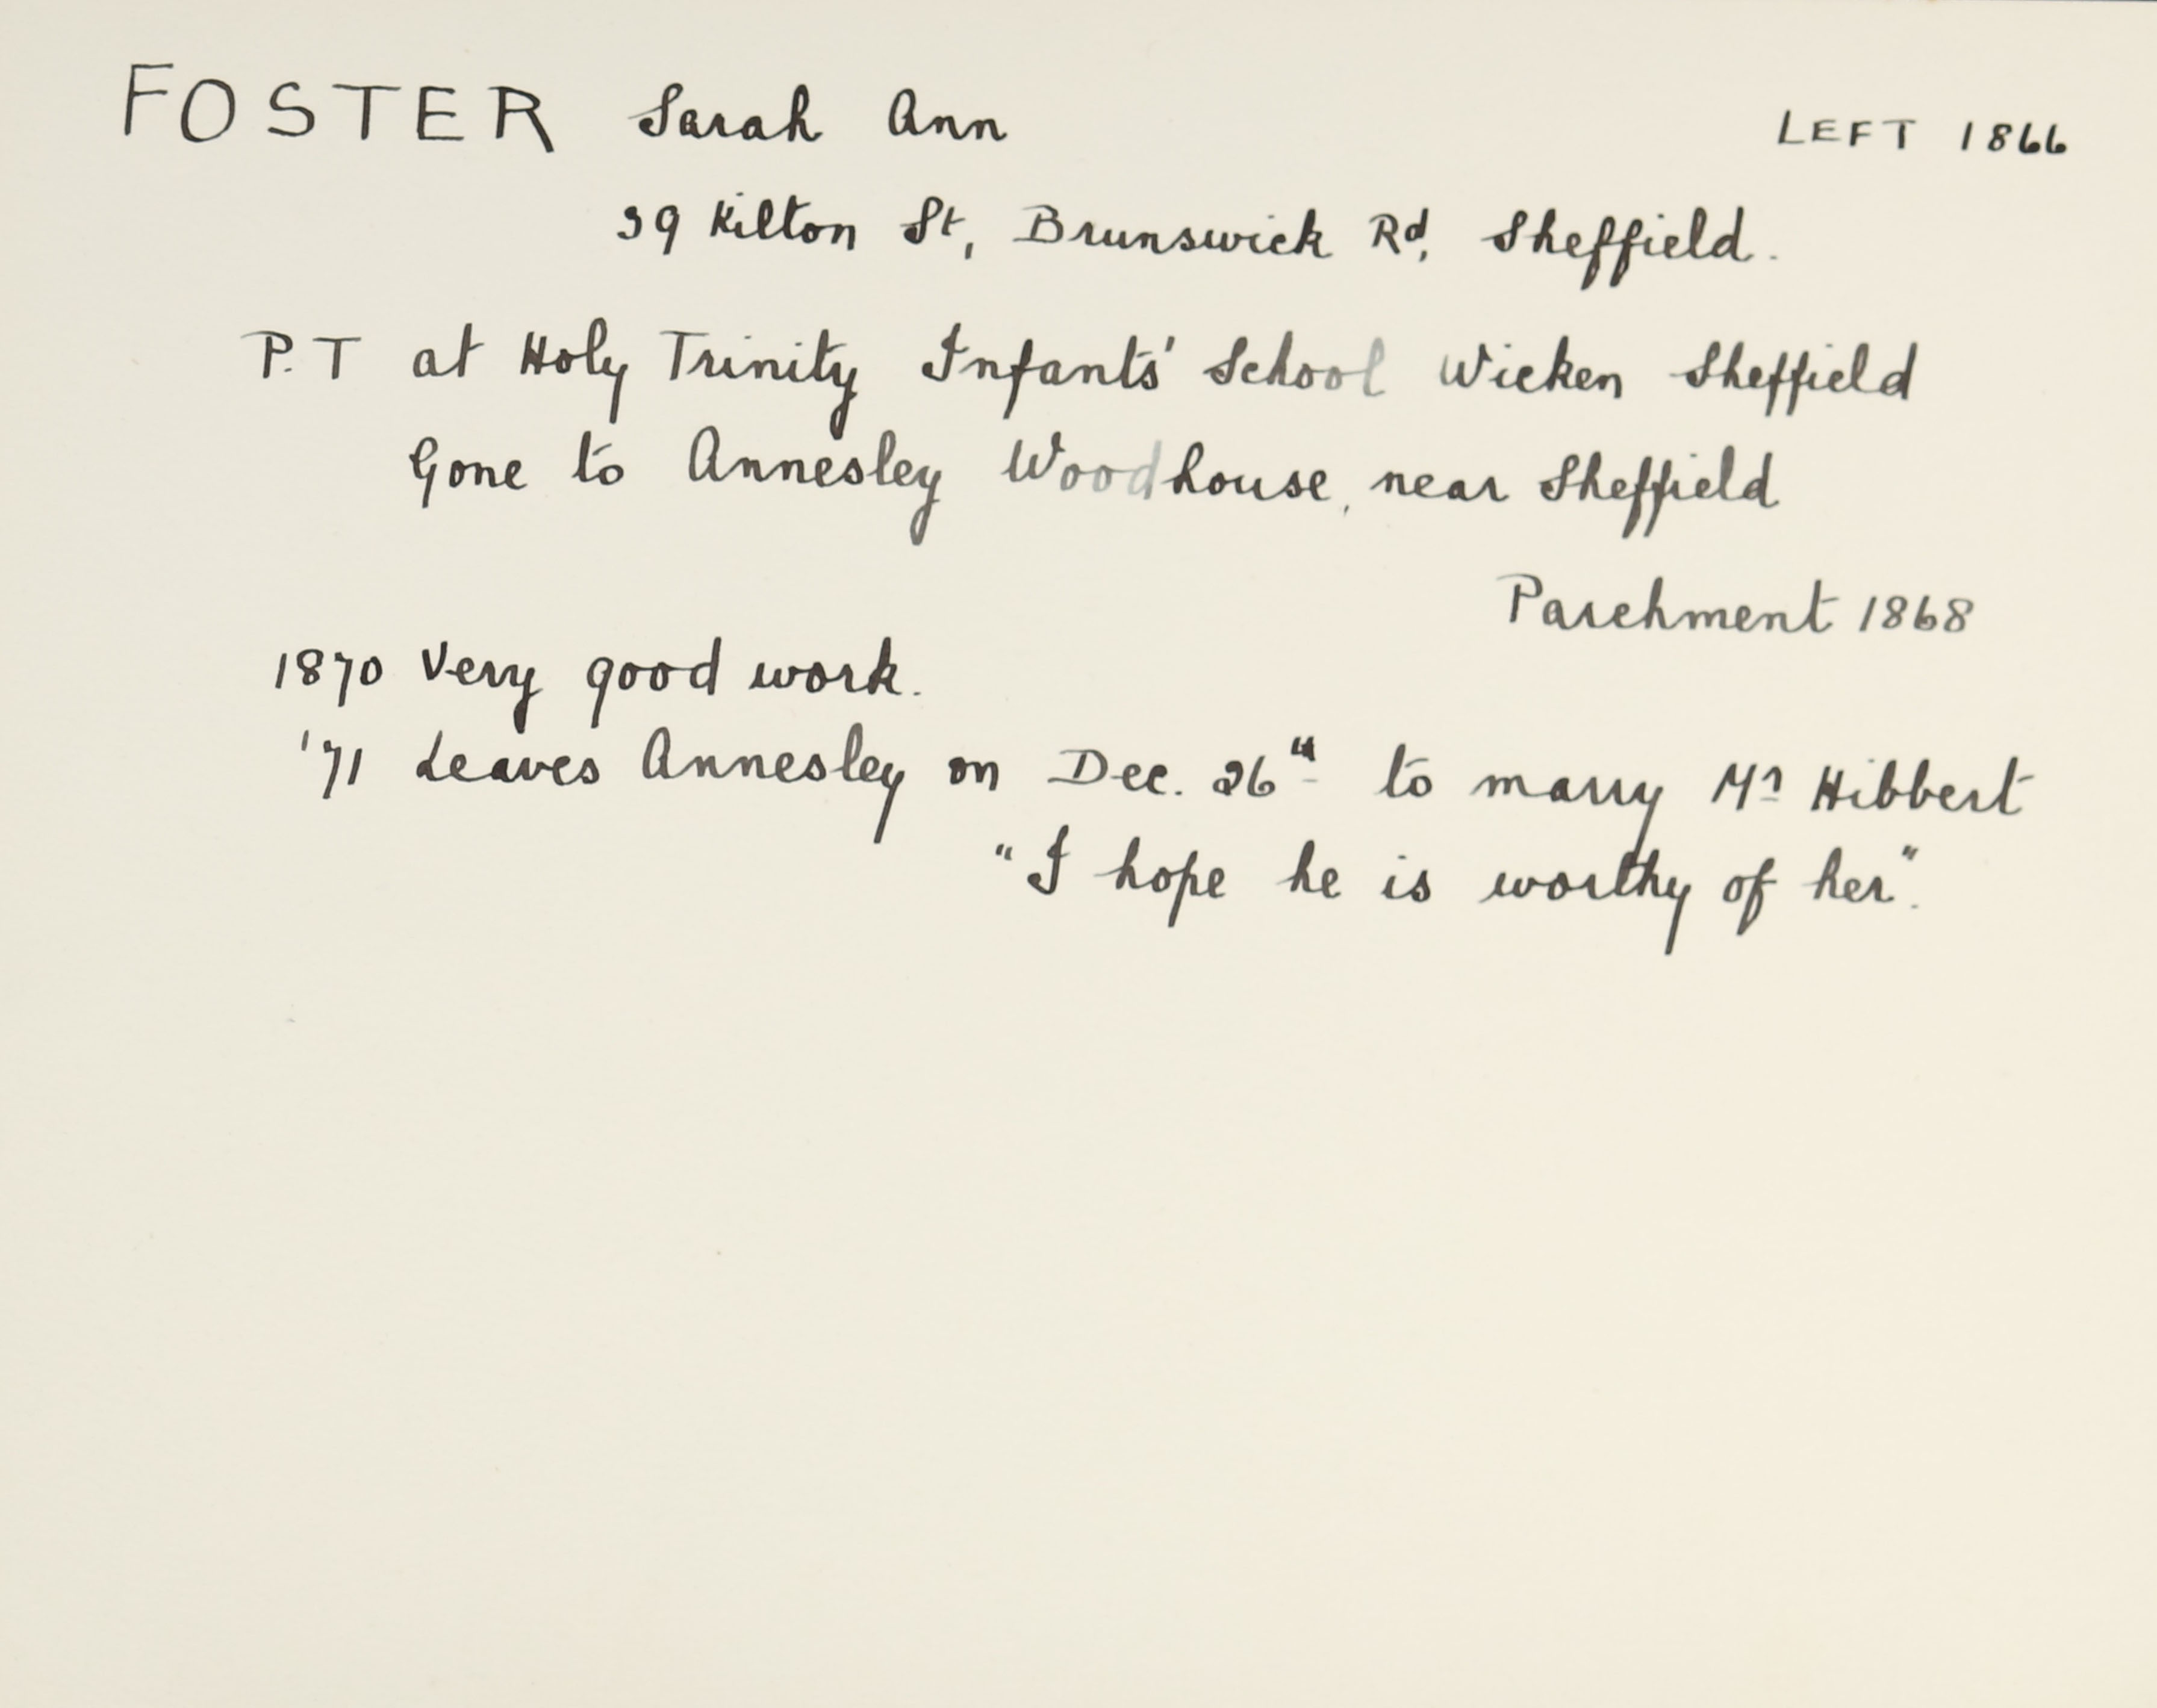 FOSTER Sarah Ann LEFT 1866
39 Kilton St, Brunswick Rd, Sheffield.
P.T at Holy Trinity Infants' School Wicken Sheffield
Gone to Annesley Woodhouse, near Sheffield
Parchment 1868
1870 Very good work.
'71 Leaves Annesley on Dec. 26th to marry Mr Hibbert
"I hope he is worthy of her".